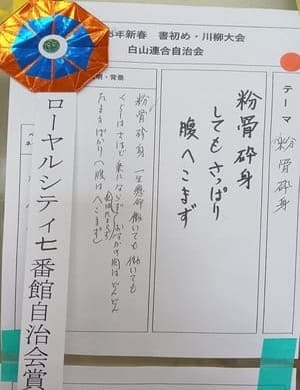 5年新春　書初め・川柳大会
白山連合自治会
テーマ　粉骨砕身
粉骨砕身
してもさっぱり
腹へこまず
明・背景
粉骨砕身　一生懸命働いても働いても
くらしはさほど楽にならず
おなかの肉はどんどん
たまるばかり（腹はへこまず）
ローヤルシティ七番館自治会賞